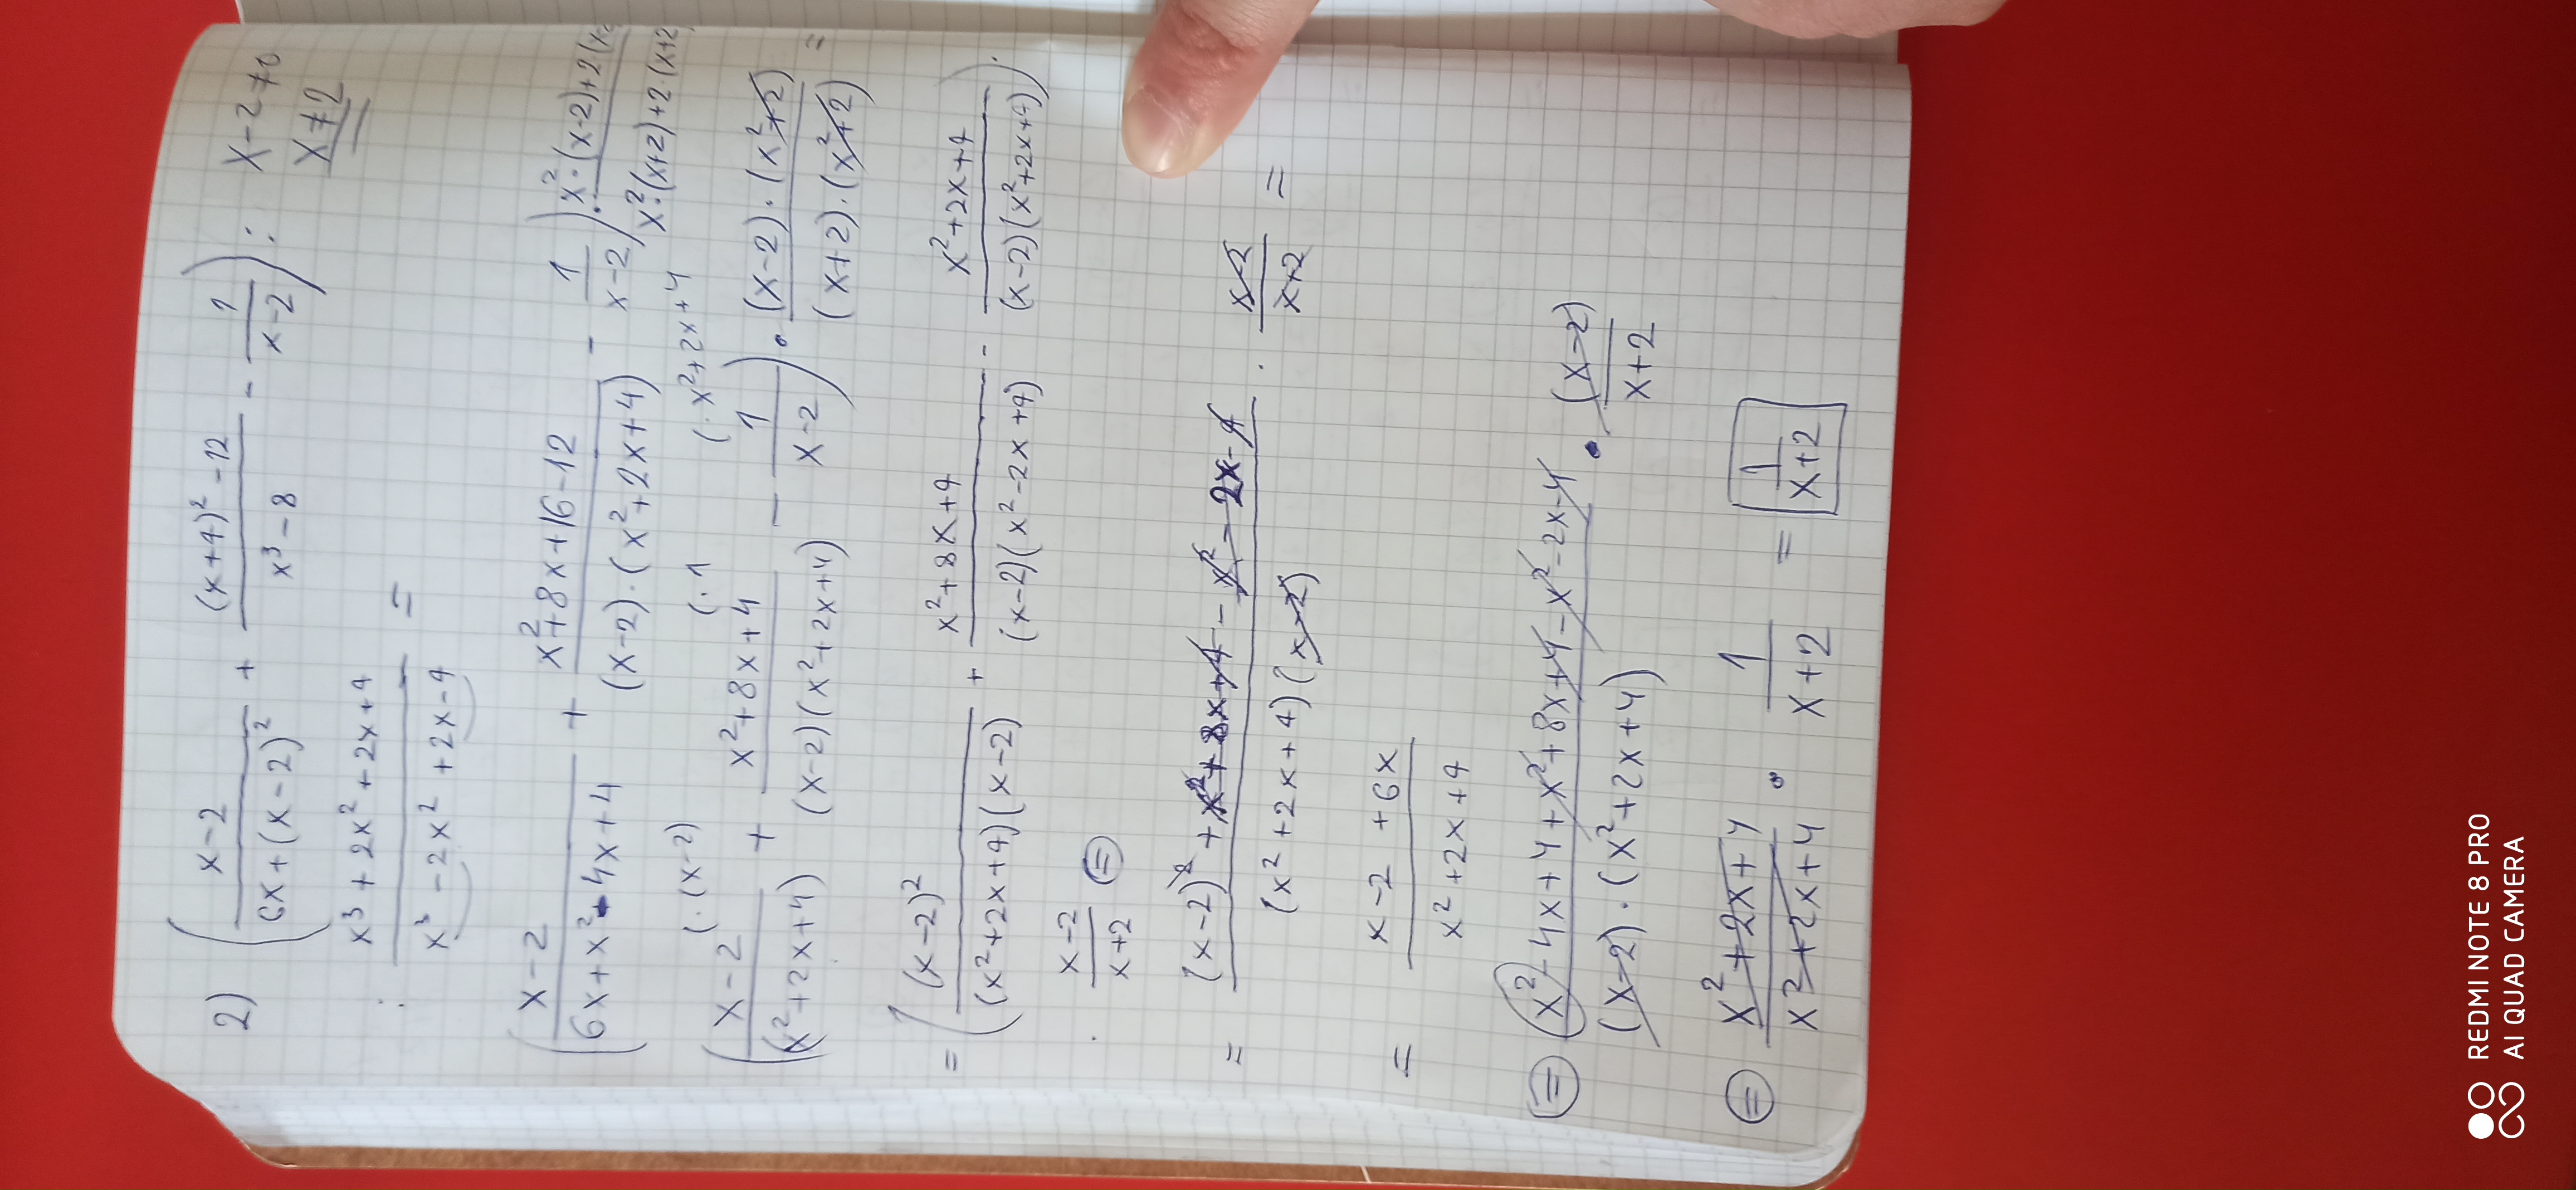 2) ( (x-2)/(6x+(x-2)²) + ((x+4)²-12)/(x³-8) - 1/(x-2) ) :
x-2≠0
x≠2
: (x³+2x²+2x+4)/(x³-2x²+2x-4) =
( (x-2)/(6x+x²-4x+4) + (x²+8x+16-12)/((x-2)·(x²+2x+4)) - 1/(x-2) ) · (x²·(x-2)+2·(x-2)/(x²·(x+2)+2·(x+2)
(·(x-2) (·1 (·x²+2x+4
( (x-2)/(x²+2x+4) + (x²+8x+4)/((x-2)(x²+2x+4)) - 1/(x-2) ) · ((x-2)·(x²+2))/((x+2)·(x²+2)) =
= ( (x-2)²/((x²+2x+4)(x-2)) + (x²+8x+4)/((x-2)(x²-2x+4)) - (x²+2x+4)/((x-2)(x²+2x+4)) ) ·
· (x-2)/(x+2) =
= ((x-2)²+x²+8x+4-x²-2x-4)/((x²+2x+4)(x-2)) · (x-2)/(x+2) =
= (x-2+6x)/(x²+2x+4)
= (x²-4x+4+x²+8x+4-x²-2x-4)/((x-2)·(x²+2x+4)) · (x-2)/(x+2)
= (x²+2x+4)/(x²+2x+4) · 1/(x+2) = 1/(x+2)
REDMI NOTE 8 PRO
AI QUAD CAMERA